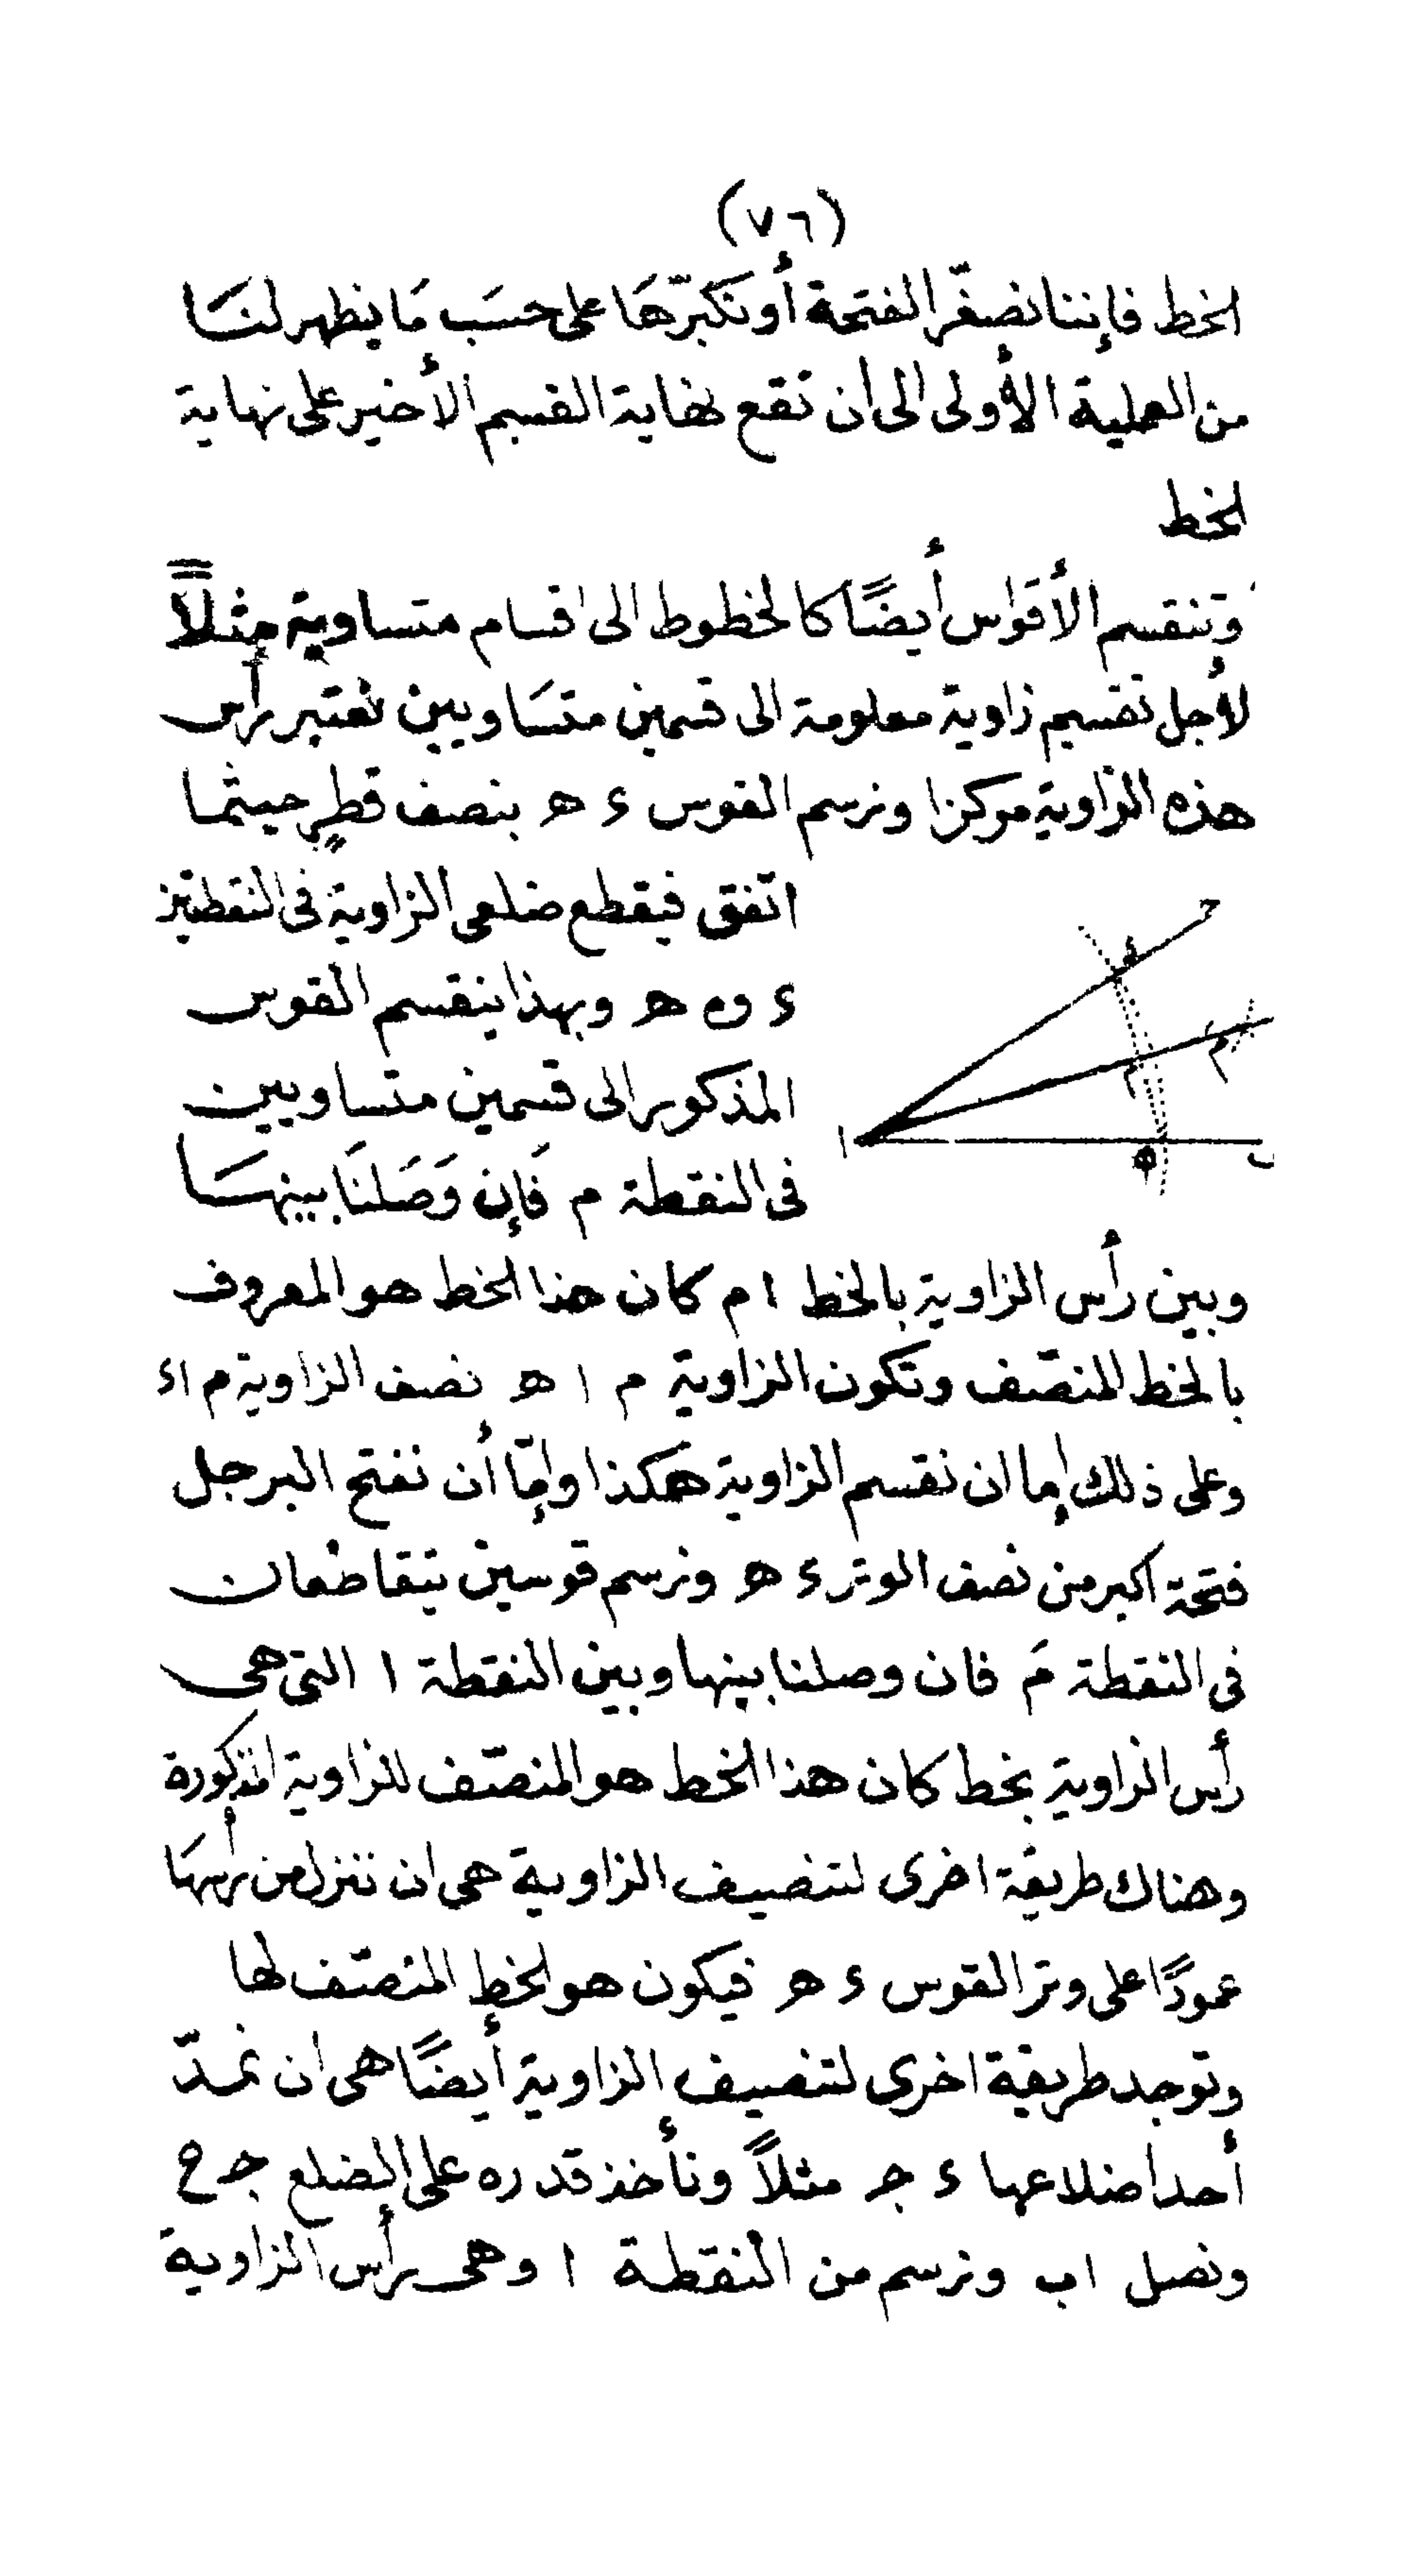 (٧٦)
الخط فإننا نصغّر الفتحة أو نكبّرها على حسَب مَا يظهر لنَا
من العملية الأولى الى ان تقع نهاية القسم الأخير على نهاية
الخط
وتنقسم الأقواس أيضًا كالخطوط الى اقسام متساوية مثلاً
لأجل تقسيم زاوية معلومة الى قسمين متسَاويين نعتبر رأس
هذه الزاوية مركزا ونرسم القوس ء ه بنصف قطرٍ حيثما
اتّفق فيقطع ضلعى الزاوية فى النقطتين
ء و ه وبهذا ينقسم القوس
المذكور الى قسمين متساويين
فى النقطة م فَإن وَصَلنَا بينهَا
وبين رأس الزاوية بالخط ا م كان هذا الخط هو المعروف
بالخط المنصّف وتكون الزاوية م ا ه نصف الزاوية م ا ء
وعلى ذلك إما ان نقسم الزاوية هكذا وإمّا أن نفتح البرجل
فتحة اكبر من نصف الوتر ء ه ونرسم قوسين يتقاطعان
فى النقطة مَ فان وصلنا بينها وبين النقطة ا التى هى
رأس الزاوية بخط كان هذا الخط هو المنصّف للزاوية المذكورة
وهناك طريقة اخرى لتنصيف الزاوية هى ان ننزل من رأسهَا
عمودًا على وتر القوس ء ه فيكون هو الخط المنصّف لها
وتوجد طريقة اخرى لتنصيف الزاوية أيضًا هى ان نمدّ
أحد اضلاعها ء جـ مثلاً ونأخذ قدره على الضلع جـ ح
ونصل اب ونرسم من النقطة ا وهى رأس الزاوية
ح
ء
مَ
م
ا
ه
ب